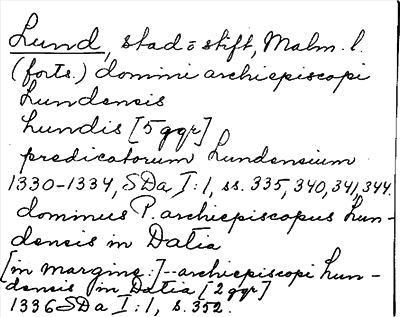 Lund, stad o stift, Malm. l.
(forts.) domini archiepiscopi
Lundensis
Lundis [5 ggr]
predicatorum Lundensium
1330-1334, SDa I:1, ss. 335, 340, 341, 344.
dominus P. archiepiscopus Lun-
densis in Datia
[in margine:]--archiepiscopi Lun-
densis in Datia [2 ggr]
1336 SDa I:1, s. 352.